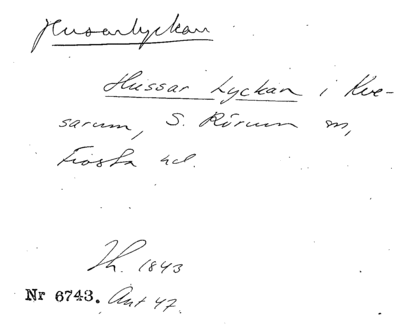 Husarlyckan
Hussar Lyckan i Kve-
sarum, S. Rörum sn,
Frosta hd.
Th. 1843
Nr 6743. Ant 47.